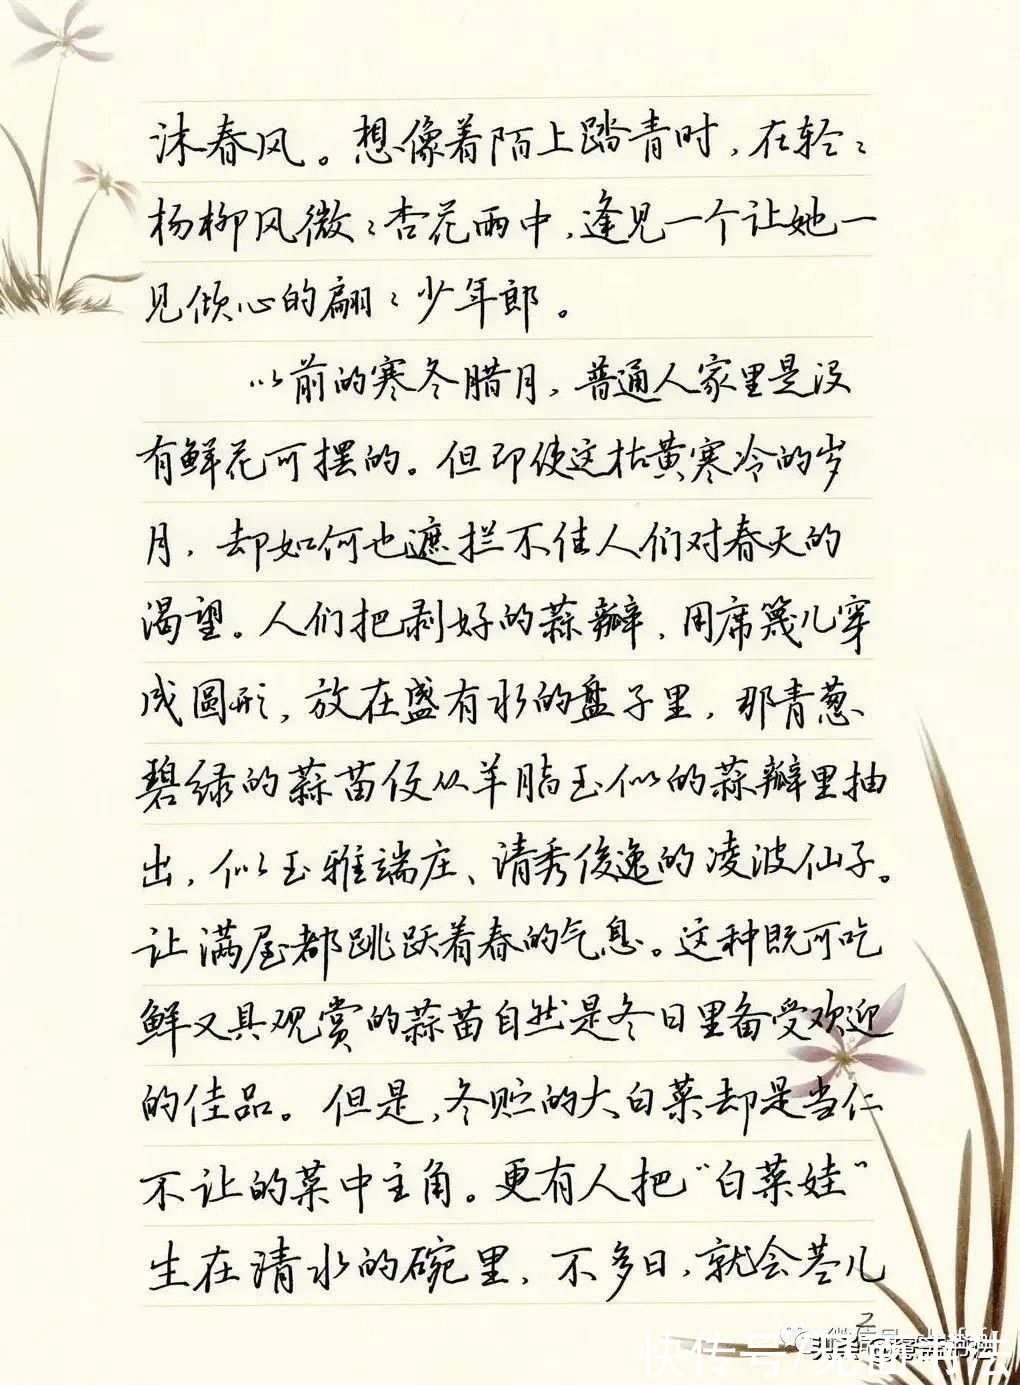 沐春风。想像着陌上踏青时，在轻々
杨柳风微々杏花雨中，逢见一个让她一
见倾心的翩々少年郎。
以前的寒冬腊月，普通人家里是没
有鲜花可摆的。但即使这枯黄寒冷的岁
月，却如何也遮拦不住人们对春天的
渴望。人们把剥好的蒜瓣，用席篾儿穿
成圆形，放在盛有水的盘子里，那青葱
碧绿的蒜苗便从羊脂玉似的蒜瓣里抽
出，似玉雅端庄、清秀俊逸的凌波仙子。
让满屋都跳跃着春的气息。这种既可吃
鲜又具观赏的蒜苗自然是冬日里备受欢迎
的佳品。但是，冬贮的大白菜却是当仁
不让的菜中主角。更有人把“白菜娃”
生在清水的碗里，不多日，就会苍儿
2
快传号/